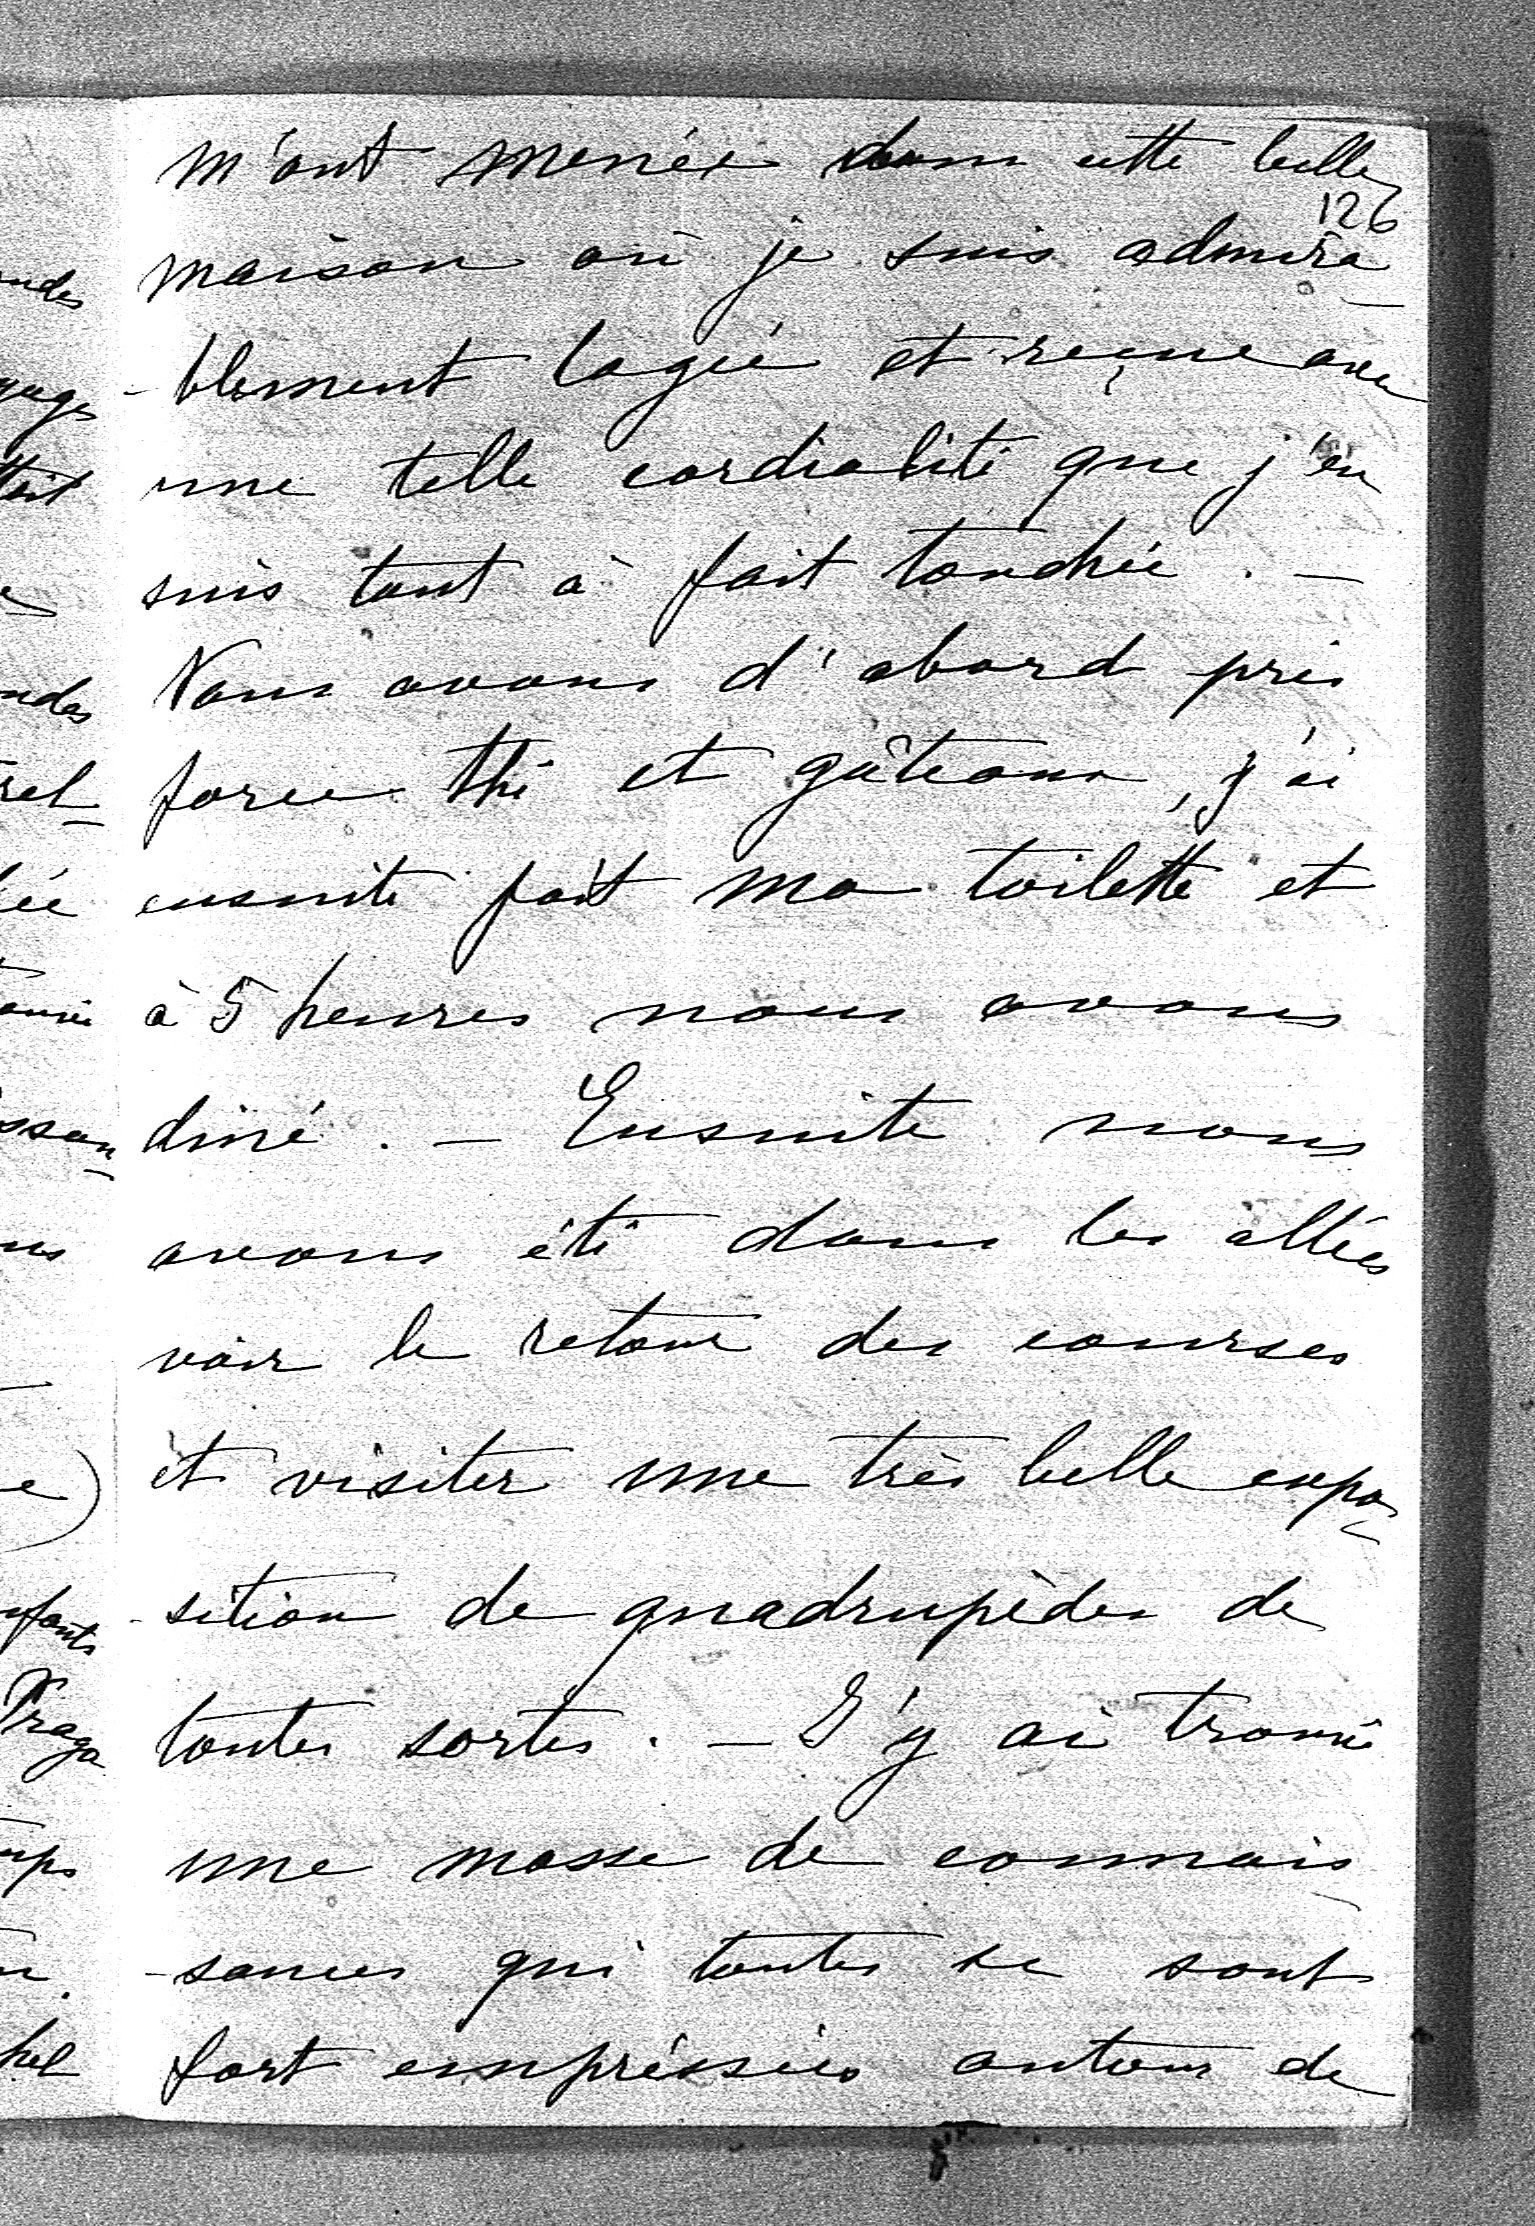 m'ont menée dans cette belle
126
maison où je suis admira-
-blement logée et reçue avec
une telle cordialité que j'en
suis tout à fait touchée. —
Nous avons d'abord pris
force thé et gâteaux, j'ai
ensuite fait ma toilette et
à 5 heures nous avons
diné. — Ensuite nous
avons été dans les allées
voir le retour des courses
et visiter une très belle expo-
-sition de quadrupèdes de
toutes sortes. — J'y ai trouvé
une masse de connais-
-sances qui toutes se sont
fort empréssées autour de